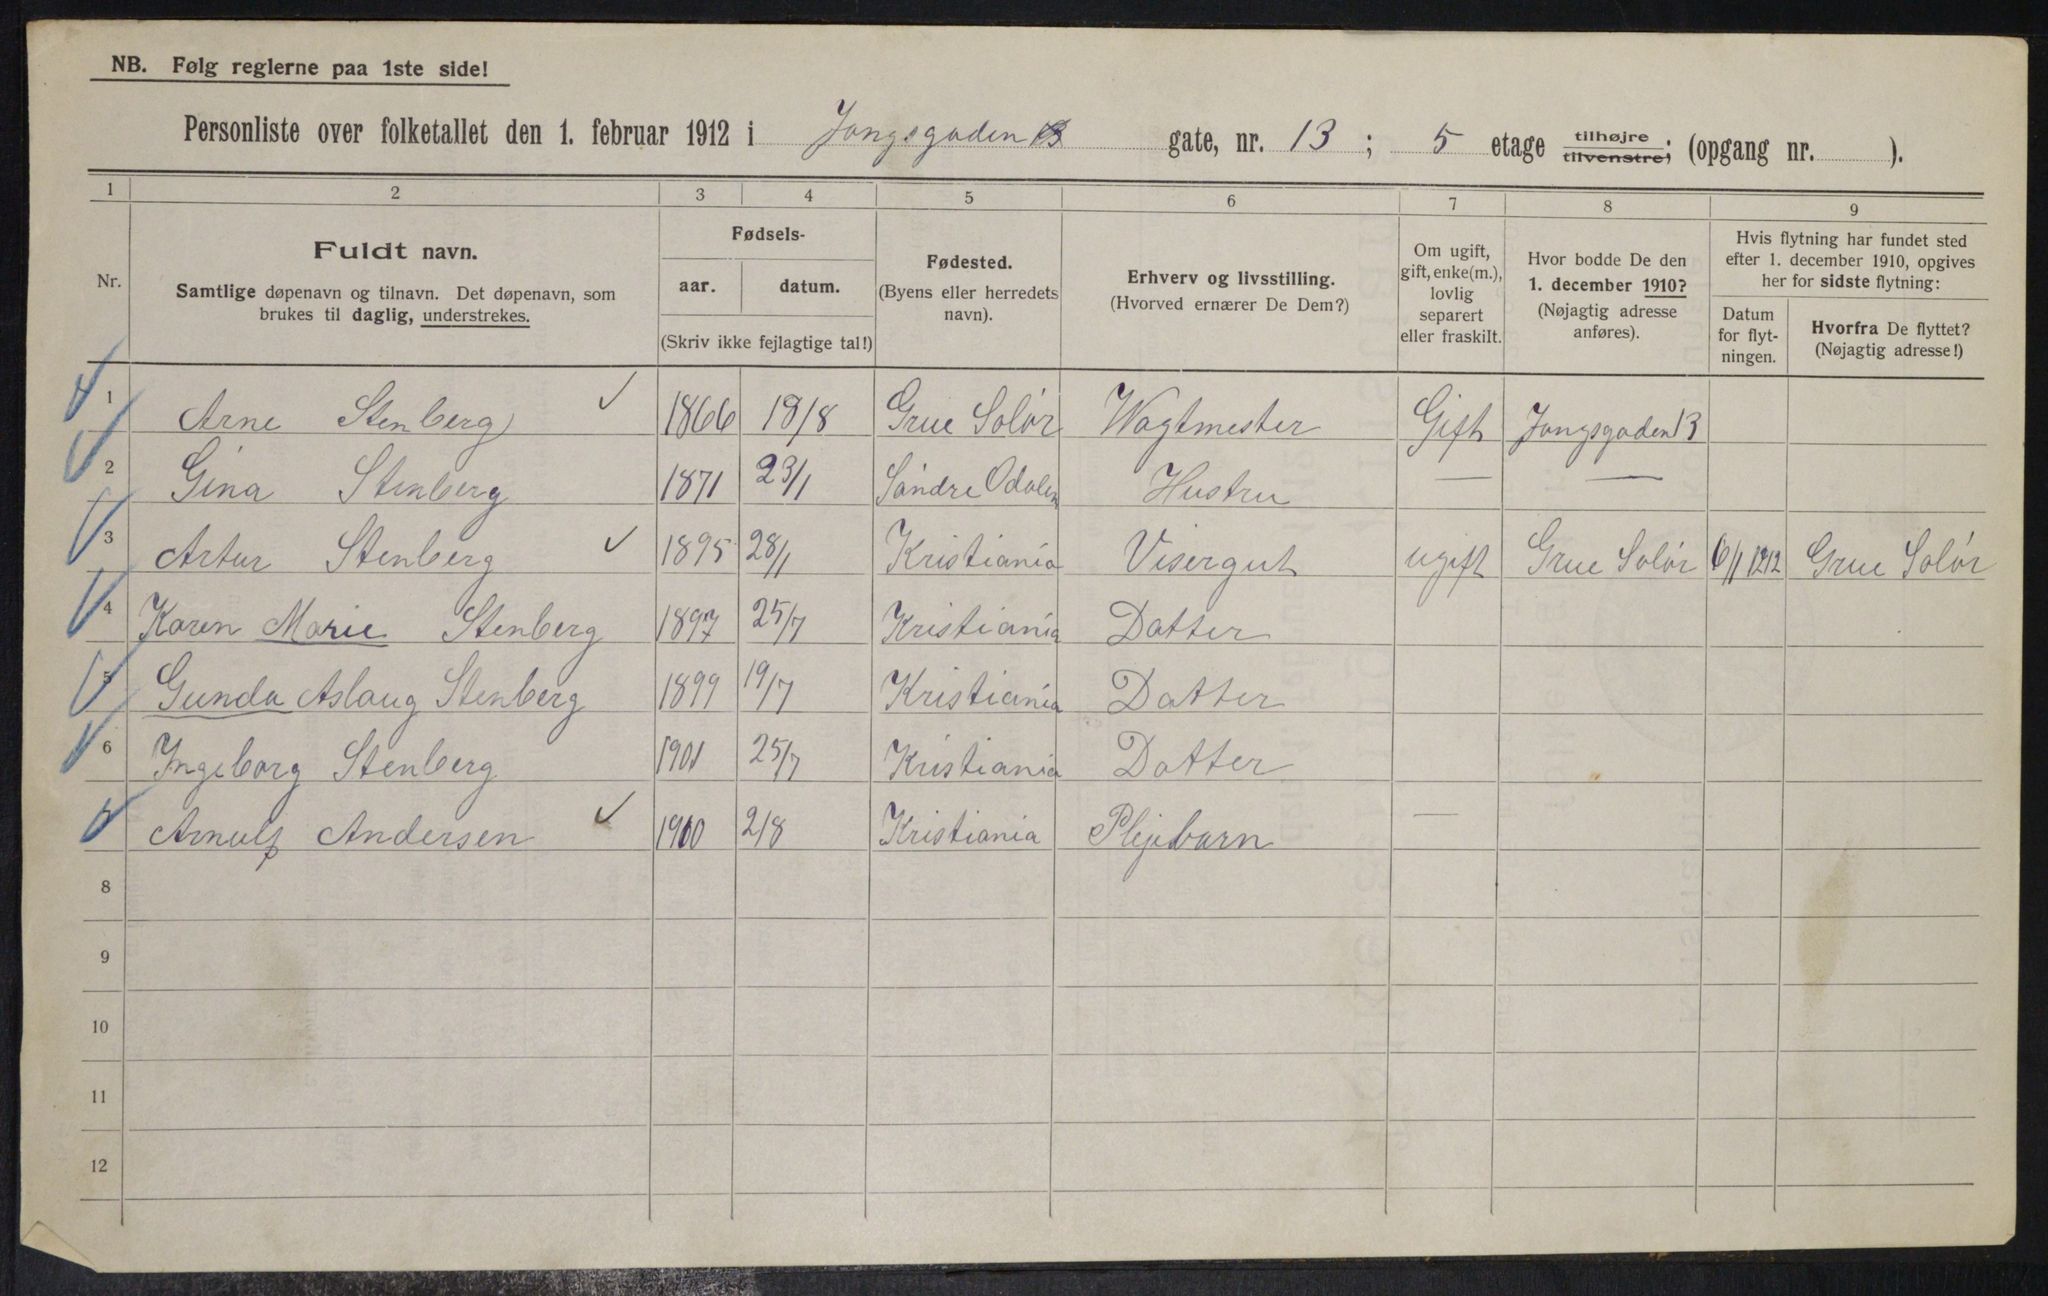 NB. Følg reglerne paa 1ste side!
Personliste over folketallet den 1. februar 1912 i Jongsgaden gate, nr. 13; 5 etage tilhøjre tilvenstre; (opgang nr. ).
1 2 3 4 5 6 7 8 9
Nr.
Fuldt navn.
Samtlige døpenavn og tilnavn. Det døpenavn, som
brukes til daglig, understrekes.
Fødsels-
aar. datum.
(Skriv ikke fejlagtige tal!)
Fødested.
(Byens eller herredets
navn).
Erhverv og livsstilling.
(Hvorved ernærer De Dem?)
Om ugift,
gift, enke(m.),
lovlig
separert
eller fraskilt.
Hvor bodde De den
1. december 1910?
(Nøjagtig adresse
anføres).
Hvis flytning har fundet sted
efter 1. december 1910, opgives
her for sidste flytning:
Datum
for flyt-
ningen.
Hvorfra De flyttet?
(Nøjagtig adresse!)
1 Arne Stenberg 1866 19/8 Grue Solør Vagtmester Gift Jongsgaden 13
2 Gina Stenberg 1871 23/1 Søndre Odalen Hustru — —
3 Artur Stenberg 1895 28/1 Kristiania Visergut ugift Grue Solør 6/1 1212 Grue Solør
4 Karen Marie Stenberg 1897 25/7 Kristiania Datter
5 Gunda Aslaug Stenberg 1899 19/7 Kristiania Datter
6 Ingeborg Stenberg 1901 25/7 Kristiania Datter
7 Arnulf Andersen 1910 2/8 Kristiania Plejebarn —
8
9
10
11
12